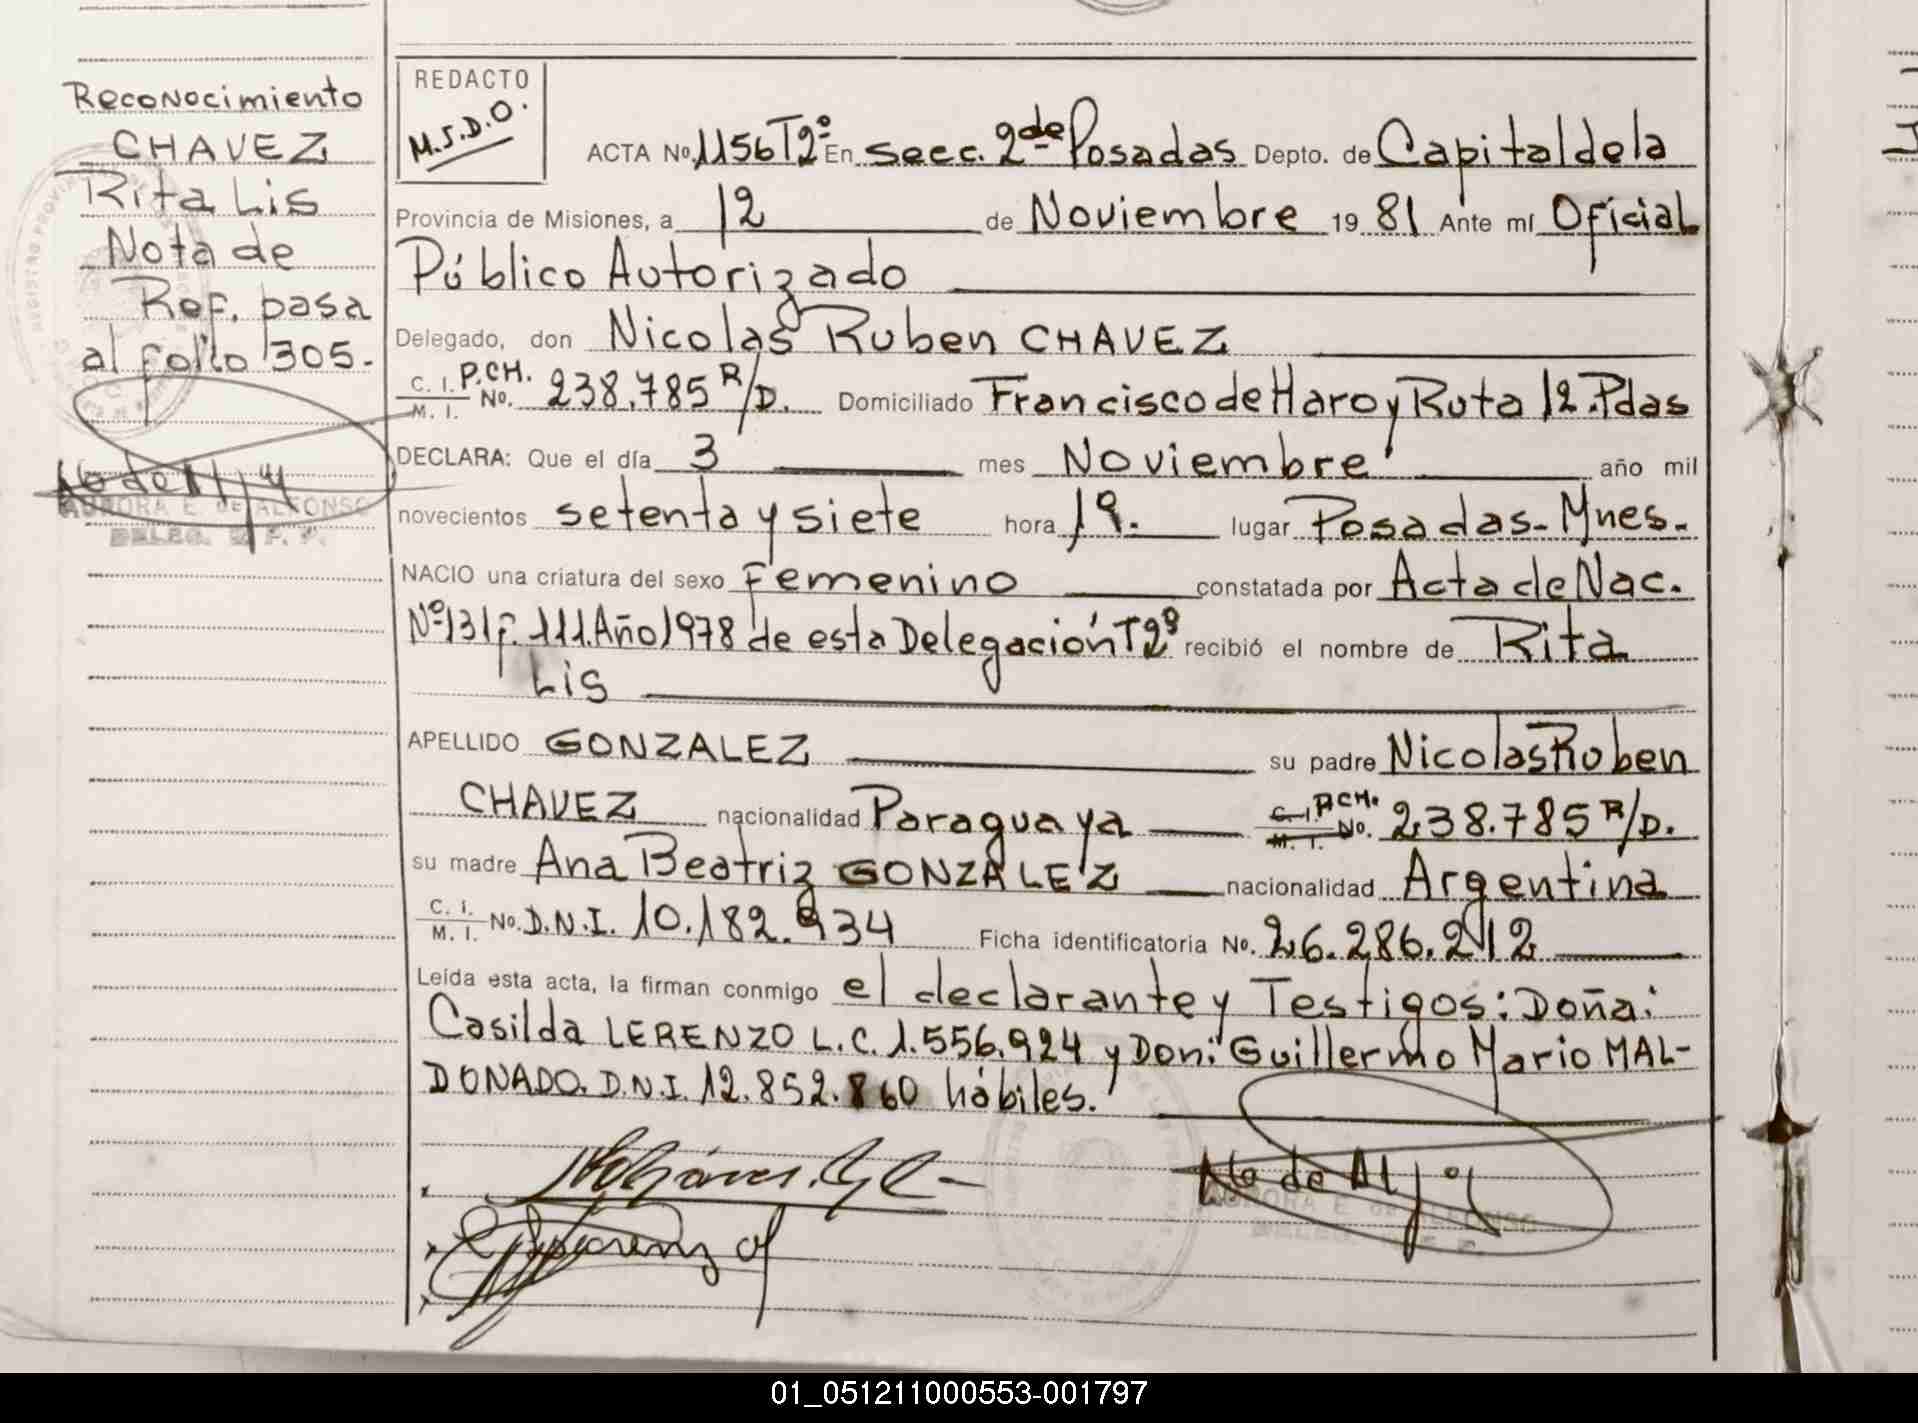 Reconocimiento
CHAVEZ
Rita Lis
Nota de
Ref. pasa
al folio 305.-
AURORA E. de ALFONSO
REDACTO
M.S.D.O.
ACTA No. 1156 T2º En secc. 2da de Posadas Depto. de Capital de la
Provincia de Misiones, a 12 de Noviembre 19 81 Ante mí Oficial
Público Autorizado
Delegado, don Nicolas Ruben CHAVEZ
C. I. P.CH.
M. I. No. 238.785 R/D. Domiciliado Francisco de Haro y Ruta 12. Pdas
DECLARA: Que el día 3 mes Noviembre año mil
novecientos setenta y siete hora 19. lugar Posadas-Mnes.
NACIO una criatura del sexo Femenino constatada por Acta de Nac.
Nº 131 F. 111 Año 1978 de esta Delegación T2º recibió el nombre de Rita
Lis
APELLIDO GONZALEZ su padre Nicolas Ruben
CHAVEZ nacionalidad Paraguaya C. I. P.CH. M. I. No. 238.785 R/D.
su madre Ana Beatriz GONZALEZ nacionalidad Argentina
C. I.
M. I. No. D.N.I. 10.182.934 Ficha identificatoria No. 26.286.212
Leída esta acta, la firman conmigo el declarante y Testigos: Doña:
Casilda LERENZO L.C. 1.556.924 y Don: Guillermo Mario MAL-
DONADO. D.N.I. 12.852.860 hábiles.
01_051211000553-001797